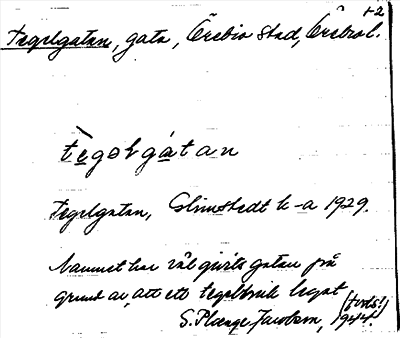 1-2
Tegelgatan, gata, Örebro stad, Örebro l.
tègəlgátan
Tegelgatan, Glimstedt k-a 1929.
Namnet har väl givits gatan på
grund av, att ett tegelbruk legat
(förts!)
S. Plænge Jacobson, 1944.